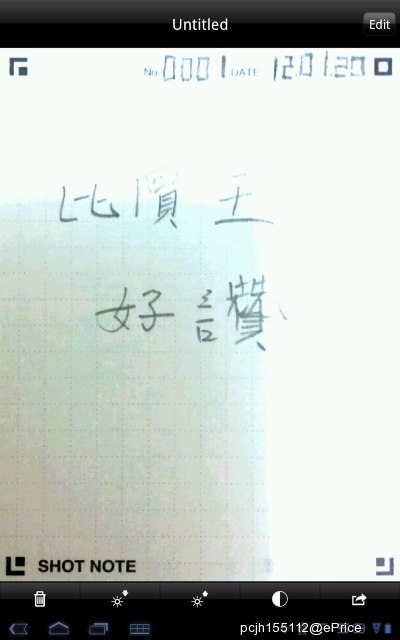 Untitled
Edit
No 0001 DATE 12.01.20
比價王
好讚
SHOT NOTE
pcjh155112@ePrice